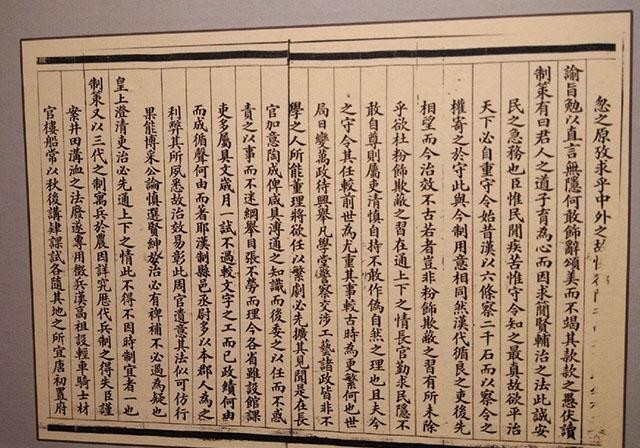 之原攷求乎中外之故惟
諭旨勉以直言無隱何敢飾辭頌美而不竭其款款之愚伏讀
制策有曰君人之道子育為心而因求簡賢輔治之法此誠安
民之急務也臣惟民間疾苦惟守令知之最真故欲平治
天下必自重守令始昔漢以六條察二千石而以察令之
權寄之於守此與今制用意相同然漢代循良之吏後先
相望而今治效不古若者豈非粉飾欺蔽之習有所未除
乎欲杜粉飾欺蔽之習在通上下之情長官勤求民隱不
敢自尊則屬吏清慎自持不敢作偽自然之理也且夫今
之守令其任較前世為尤重其事較古時為更繁何也世
局日變萬政待興舉凡學堂警察交涉工藝諸政皆非不
學之人所能董理將欲任以繁劇必先擴其見聞是在長
官加意陶成俾咸具溥通之知識而後委之以任而不惑
責之以事而不迷綱舉目張不勞而理今各省雖設館課
吏多屬具文歲月一試不過較文字之工而已政績何由
而成循聲何由而著耶漢制縣邑丞尉多以本郡人為之
利弊其所夙悉故治效易彰此周官遺意其法似可仿行
果能博采公論慎選賢紳治必有裨補不必過為疑也
皇上澄清吏治必先通上下之情此不得不因時制宜者一也
制策又以三代之制寓兵於農因詳究歷代兵制之得失臣謹
案井田溝洫之法廢遂專用徵兵漢高祖設輕車騎士材
官樓船常以秋後講肄課試各隨其地之所宜唐初置府